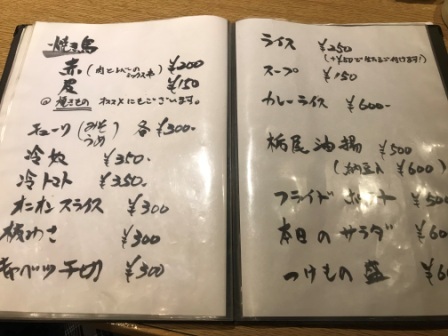 焼き鳥
赤(肉とレバーのミックス串) ¥200
皮 ¥150
@焼きもの オススメにもございます。
キューリ(みそ うめ) 各¥300-
冷奴 ¥350-
冷トマト ¥350-
オニオンスライス ¥300
板わさ ¥300
キャベツ千切 ¥300
ライス ¥250
(+¥50で
スープ ¥150
カレーライス ¥600-
栃尾油揚 ¥500
(納豆入 ¥600)
フライドポテト ¥500
本日のサラダ ¥60
つけもの盛 ¥6